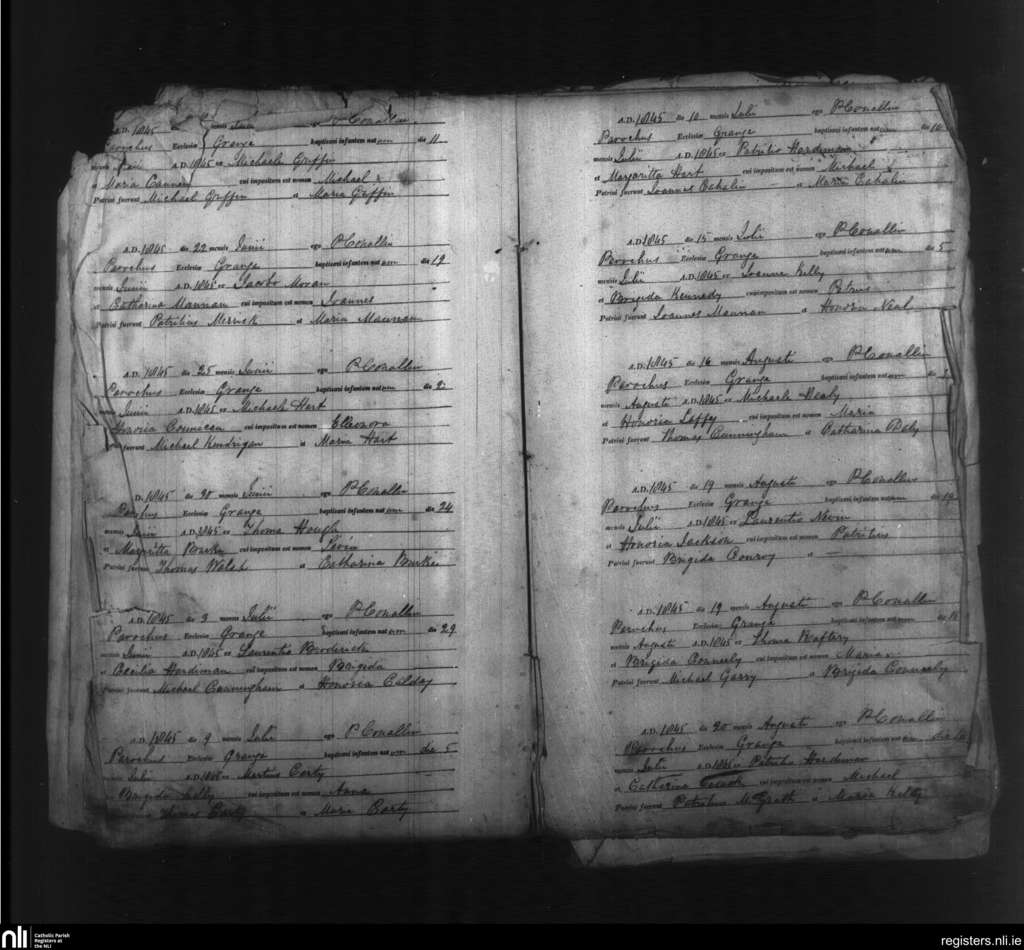 A.D. 1845 mensis ego P Conallin
Parochus Ecclesiæ Grange baptizavi infantem natum die 11
mensis Junii A.D. 1845 ex Michaele Griffin
et Maria Cannan cui impositum est nomen Michael
Patrini fuerunt Michael Griffin et Maria Griffin
A.D. 1845 die 22 mensis Junii ego P Conallin
Parochus Ecclesiæ Grange baptizavi infantem natum die 19
mensis Junii A.D. 1845 ex Jacobo Moran
et Catharina Mannan cui impositum est nomen Joannes
Patrini fuerunt Patritius Merrick et Maria Mannan
A.D. 1845 die 25 mensis Junii ego P Conallin
Parochus Ecclesiæ Grange baptizavi infantem natum die 2
mensis Junii A.D. 1845 ex Michaele Hart
Honoria cui impositum est nomen Elleonora
fuerunt Michael Kendrigan et Maria Hart
D. 1845 die mensis Junii ego P Conallin
Parochus Ecclesiæ Grange baptizavi infantem natum die 24
mensis Junii A.D. 1845 ex Thoma Hough
et Margritta Burke cui impositum est nomen
Patrini fuerunt Thomas Walsh et Catharina Burke
A.D. 1845 die 3 mensis Julii ego P Conallin
Parochus Ecclesiæ Grange baptizavi infantem natum die 29
mensis Junii A.D. 1845 ex Laurentio Broderick
et Cecilia Hardiman cui impositum est nomen Brigida
Patrini fuerunt Michael Cunningham et Honoria Calday
A.D. 1845 die 9 mensis Julii ego P Conallin
Parochus Ecclesiæ Grange baptizavi infantem natum die 5
mensis Julii A.D. 1845 ex Martino Carty
Brigida Kelly cui impositum est nomen Anna
Thomas Carty et Maria Carty
A.D. 1845 die 10 mensis Julii ego P Conallin
Parochus Ecclesiæ Grange baptizavi infantem natum die 10
mensis Julii A.D. 1845 ex Patritio Hardiman
et Margaritta Hart cui impositum est nomen Michael
Patrini fuerunt Joannes Cahalin et Maria Cahalin
A.D. 1845 die 15 mensis Julii ego P Conallin
Parochus Ecclesiæ Grange baptizavi infantem natum die 5
mensis Julii A.D. 1845 ex Joanne Kelly
et Brigida Kennedy cui impositum est nomen Petrus
Patrini fuerunt Joannes Mannan et Honoria Neal
A.D. 1845 die 16 mensis Augusti ego P Conallin
Parochus Ecclesiæ Grange baptizavi infantem natum die
mensis Augusti A.D. 1845 ex Michaele Dealy
et Honoria Laffy cui impositum est nomen Maria
Patrini fuerunt Thomas Cunningham et Catharina Daly
A.D. 1845 die 19 mensis Augusti ego P Conallin
Parochus Ecclesiæ Grange baptizavi infantem natum die
mensis Julii A.D. 1845 ex Laurentio Nevin
et Honoria Jackson cui impositum est nomen Patritius
Patrini fuerunt Brigida Conroy et
A.D. 1845 die 19 mensis Augusti ego P Conallin
Parochus Ecclesiæ Grange baptizavi infantem natum die 15
mensis Augusti A.D. 1845 ex Thoma Raftery
et Brigida Conneely cui impositum est nomen Maria
Patrini fuerunt Michael Garry et Brigida Conneely
A.D. 1845 die 20 mensis Augusti ego P Conallin
Parochus Ecclesiæ Grange baptizavi infantem natum die
mensis Julii A.D. 1845 ex Patritio Hardiman
et Catherina cui impositum est nomen Michael
Patrini fuerunt Patritius McGrath et Maria Kelly
nli
Catholic Parish
Registers at
the NLI
registers.nli.ie